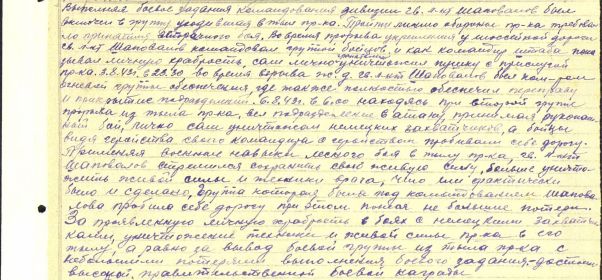 Выполняя боевые задания командования дивизии гв. л-нт Шаповалов был
включен в группу уходившая в тыл пр-ка. Пройти линию обороны пр-ка требова-
ло принятия встречного боя. Во время прорыва укрепления у шоссейной дороги
гв. л-нт Шаповалов командовал группой бойцов, и как командир штаба пока
зывал личную храбрость, сам лично уничтожил пушку с прислугой
пр-ка. 3.8.43г. в 22.30 во время взрыва ж.д. гв. л-нт Шаповалов был ком-ром
огневой группы обеспечения, где также полностью обеспечил переправу
и прикрытие подразделений. 6.8.43г. в 6.00 находясь при второй группе
прорыва из тыла пр-ка, вел подразделение в атаку, принимая рукопаш
ный бой, лично сам уничтожал немецких захватчиков, а бойцы
видя геройства своего командира с геройством пробивали себе дорогу.
Применяя военные навыки лесного боя в тылу пр-ка, гв. л-нт
Шаповалов стремился сохранить свою живую силу, больше уничто-
жить живой силы и техники врага, что им фактически
было и сделано, группа которая была под командованием Шапова-
лова пробила себе дорогу при этом понеся не большие потери.
За проявленную личную храбрость в боях с немецкими захватчи
ками, уничтожение техники и живой силы пр-ка в его
тылу а равно за вывод боевой группы из тыла пр-ка с
небольшими потерями выполнения боевого задания - достоин
высокой, правительственной боевой награды.